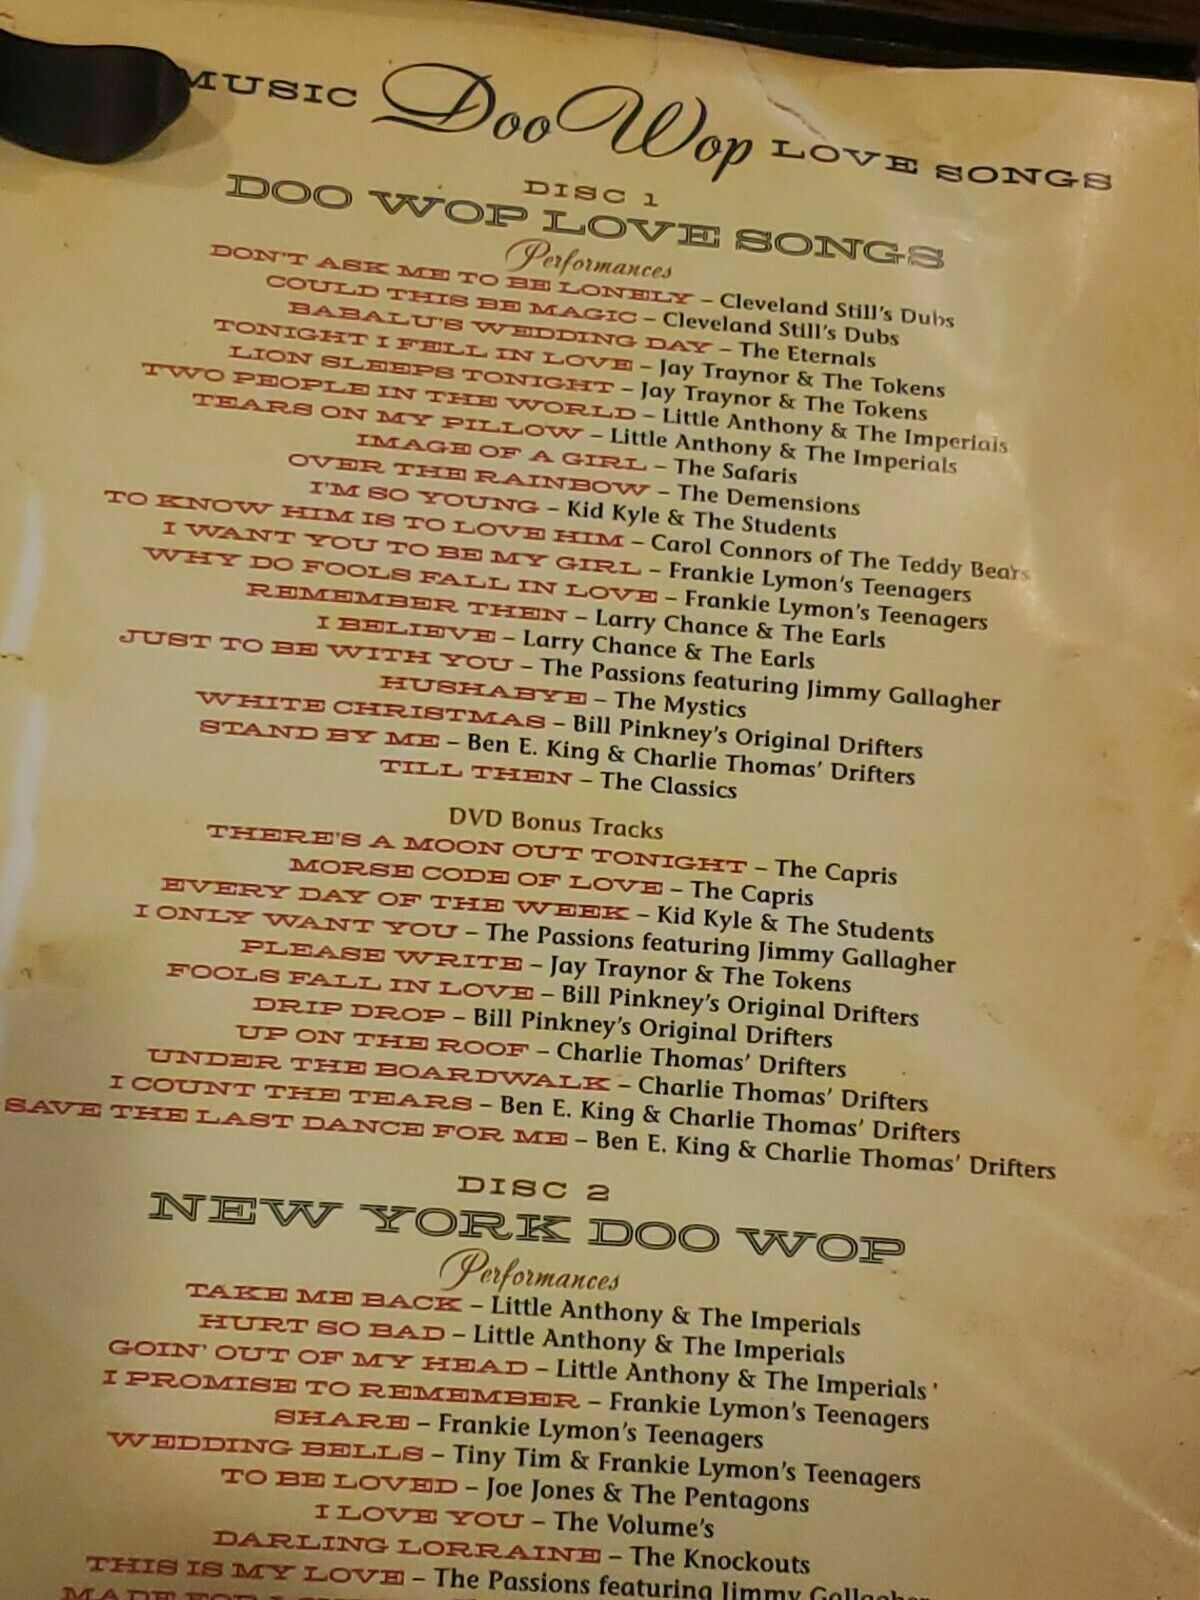 MUSIC Doo Wop LOVE SONGS
DISC 1
DOO WOP LOVE SONGS
Performances
DON'T ASK ME TO BE LONELY – Cleveland Still's Dubs
COULD THIS BE MAGIC – Cleveland Still's Dubs
BABALU'S WEDDING DAY – The Eternals
TONIGHT I FELL IN LOVE – Jay Traynor & The Tokens
LION SLEEPS TONIGHT – Jay Traynor & The Tokens
TWO PEOPLE IN THE WORLD – Little Anthony & The Imperials
TEARS ON MY PILLOW – Little Anthony & The Imperials
IMAGE OF A GIRL – The Safaris
OVER THE RAINBOW – The Demensions
I'M SO YOUNG – Kid Kyle & The Students
TO KNOW HIM IS TO LOVE HIM – Carol Connors of The Teddy Bears
I WANT YOU TO BE MY GIRL – Frankie Lymon's Teenagers
WHY DO FOOLS FALL IN LOVE – Frankie Lymon's Teenagers
REMEMBER THEN – Larry Chance & The Earls
I BELIEVE – Larry Chance & The Earls
JUST TO BE WITH YOU – The Passions featuring Jimmy Gallagher
HUSHABYE – The Mystics
WHITE CHRISTMAS – Bill Pinkney's Original Drifters
STAND BY ME – Ben E. King & Charlie Thomas' Drifters
TILL THEN – The Classics
DVD Bonus Tracks
THERE'S A MOON OUT TONIGHT – The Capris
MORSE CODE OF LOVE – The Capris
EVERY DAY OF THE WEEK – Kid Kyle & The Students
I ONLY WANT YOU – The Passions featuring Jimmy Gallagher
PLEASE WRITE – Jay Traynor & The Tokens
FOOLS FALL IN LOVE – Bill Pinkney's Original Drifters
DRIP DROP – Bill Pinkney's Original Drifters
UP ON THE ROOF – Charlie Thomas' Drifters
UNDER THE BOARDWALK – Charlie Thomas' Drifters
I COUNT THE TEARS – Ben E. King & Charlie Thomas' Drifters
SAVE THE LAST DANCE FOR ME – Ben E. King & Charlie Thomas' Drifters
DISC 2
NEW YORK DOO WOP
Performances
TAKE ME BACK – Little Anthony & The Imperials
HURT SO BAD – Little Anthony & The Imperials
GOIN' OUT OF MY HEAD – Little Anthony & The Imperials '
I PROMISE TO REMEMBER – Frankie Lymon's Teenagers
SHARE – Frankie Lymon's Teenagers
WEDDING BELLS – Tiny Tim & Frankie Lymon's Teenagers
TO BE LOVED – Joe Jones & The Pentagons
I LOVE YOU – The Volume's
DARLING LORRAINE – The Knockouts
THIS IS MY LOVE – The Passions featuring Jimmy Gallagher
MADE FOR